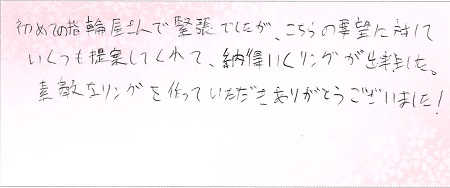 初めての指輪屋さんで緊張でしたが、こちらの要望に対して
いくつも提案してくれて、納得いくリングが出来ました。
素敵なリングを作っていただきありがとうございました!